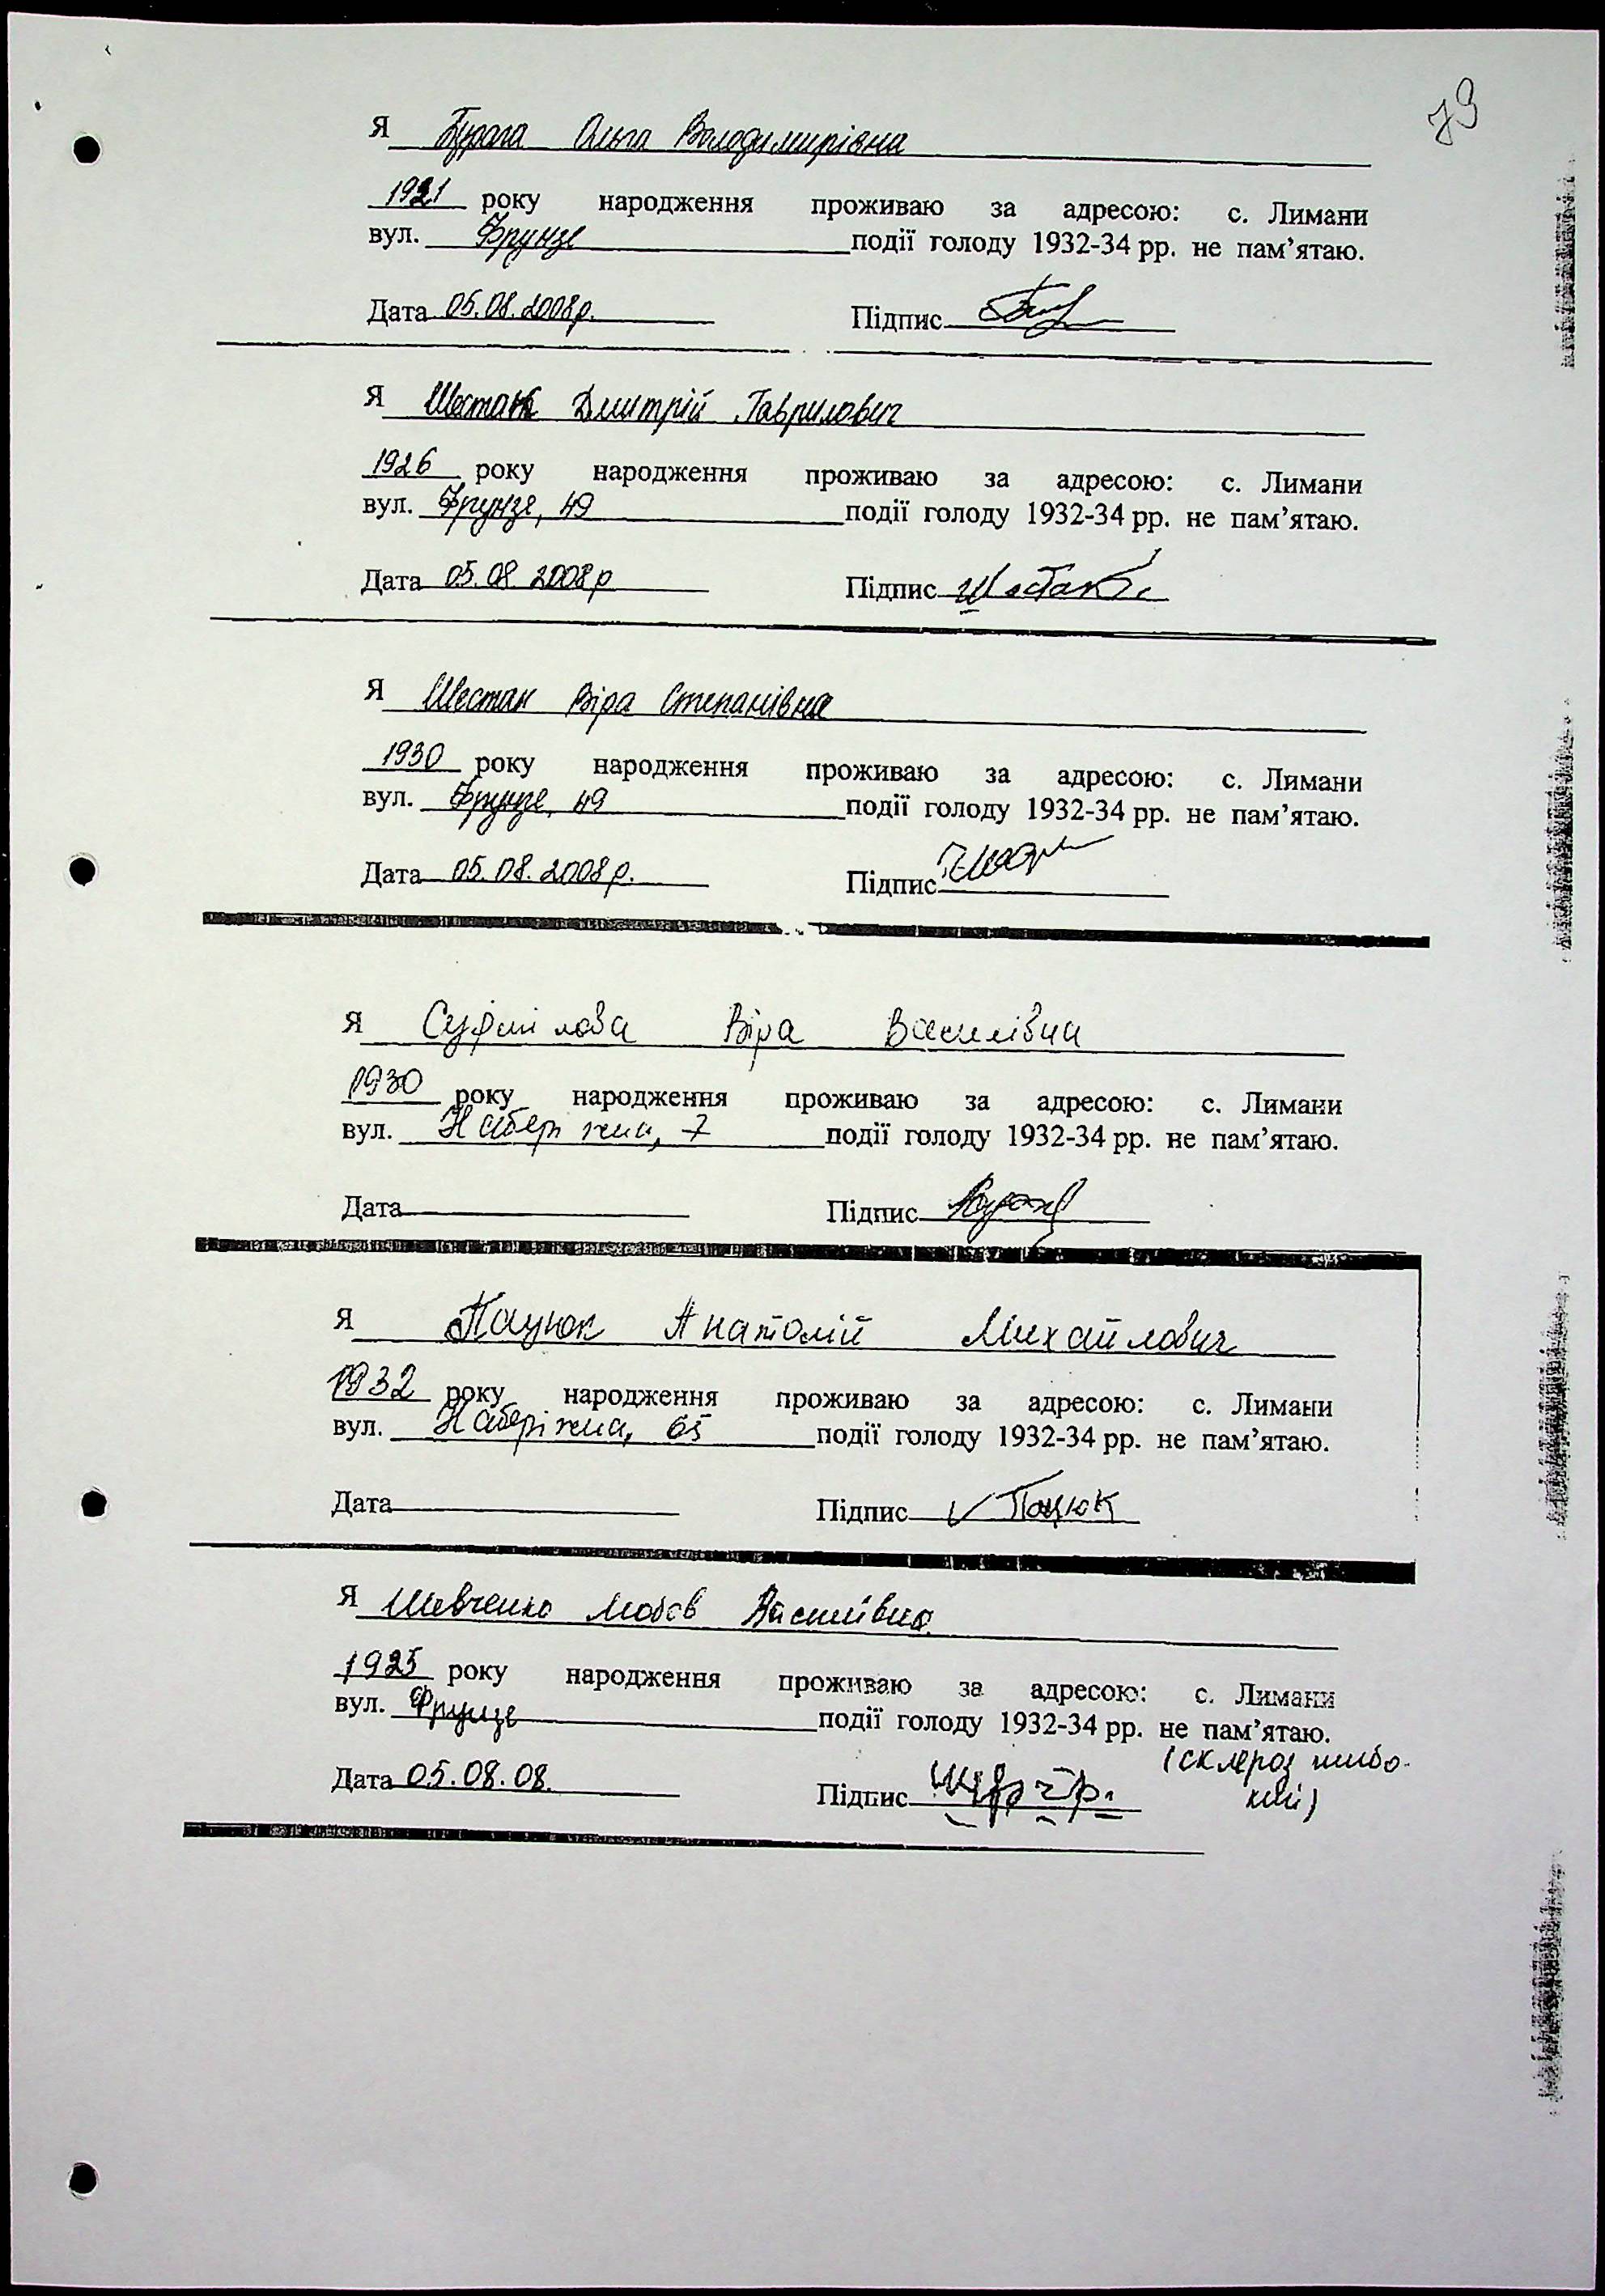 79
Я Бурага Ольга Володимирівна
1921 року народження проживаю за адресою: с. Лимани
вул. Фрунзе події голоду 1932-34 рр. не пам’ятаю.
Дата 05.08.2008р. Підпис
Я Шестак Дмитрій Гаврилович
1926 року народження проживаю за адресою: с. Лимани
вул. Фрунзе, 49 події голоду 1932-34 рр. не пам’ятаю.
Дата 05.08 2008р Підпис Шестак
Я Шестак Віра Степанівна
1930 року народження проживаю за адресою: с. Лимани
вул. Фрунзе, 49 події голоду 1932-34 рр. не пам’ятаю.
Дата 05.08.2008р. Підпис
Я Віра Василівна
1930 року народження проживаю за адресою: с. Лимани
вул. Набережна, 7 події голоду 1932-34 рр. не пам’ятаю.
Дата Підпис
Я Пацюк Анатолій Михайлович
1932 року народження проживаю за адресою: с. Лимани
вул. Набережна, 65 події голоду 1932-34 рр. не пам’ятаю.
Дата Підпис Пацюк
Я Шевченко Любов Василівна
1925 року народження проживаю за адресою: с. Лимани
вул. Фрунзе події голоду 1932-34 рр. не пам’ятаю.
(склероз глибо-
Дата 05.08.08. Підпис кий)